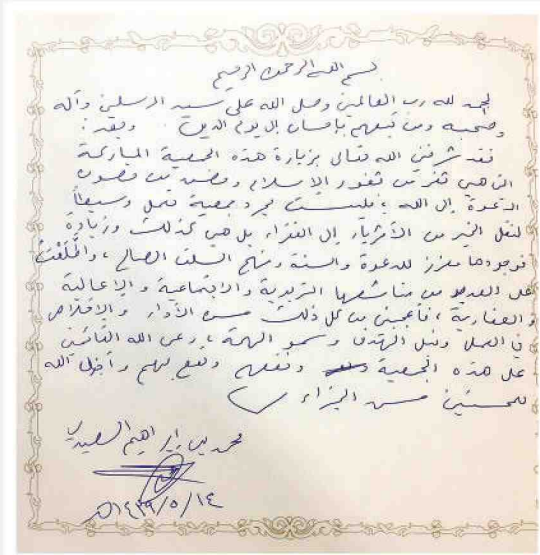 بسم الله الرحمن الرحيم
الحمد لله رب العالمين وصلى الله على سيد المرسلين وآله
وصحبه ومن تبعهم بإحسان إلى يوم الدين وبعد :
فقد شرفني الله تعالى بزيارة هذه الجمعية المباركة
التي هي ثغر من ثغور الإسلام وحصن من حصون
الدعوة إلى الله ، فليست مجرد جمعية تعمل وسيطاً
لنقل الخير من الأثرياء إلى الفقراء بل هي كذلك وزيادة
فوجودها معزز للدعوة والسنة ومنهج السلف الصالح ، واطلعت
على العديد من مناشطها التربوية والاجتماعية والإعلامية
و العقارية ، فأعجبني من كل ذلك حسن الأداء والإخلاص
في العمل ونبل الهدف وسمو الهمة ، رعى الله القائمين
على هذه الجمعية ونفعهم ونفع بهم وأجزل الله
للمحسنين حسن الجزاء
محمد بن إبراهيم السعيدي
١٤٣٩/٥/١٤هـ